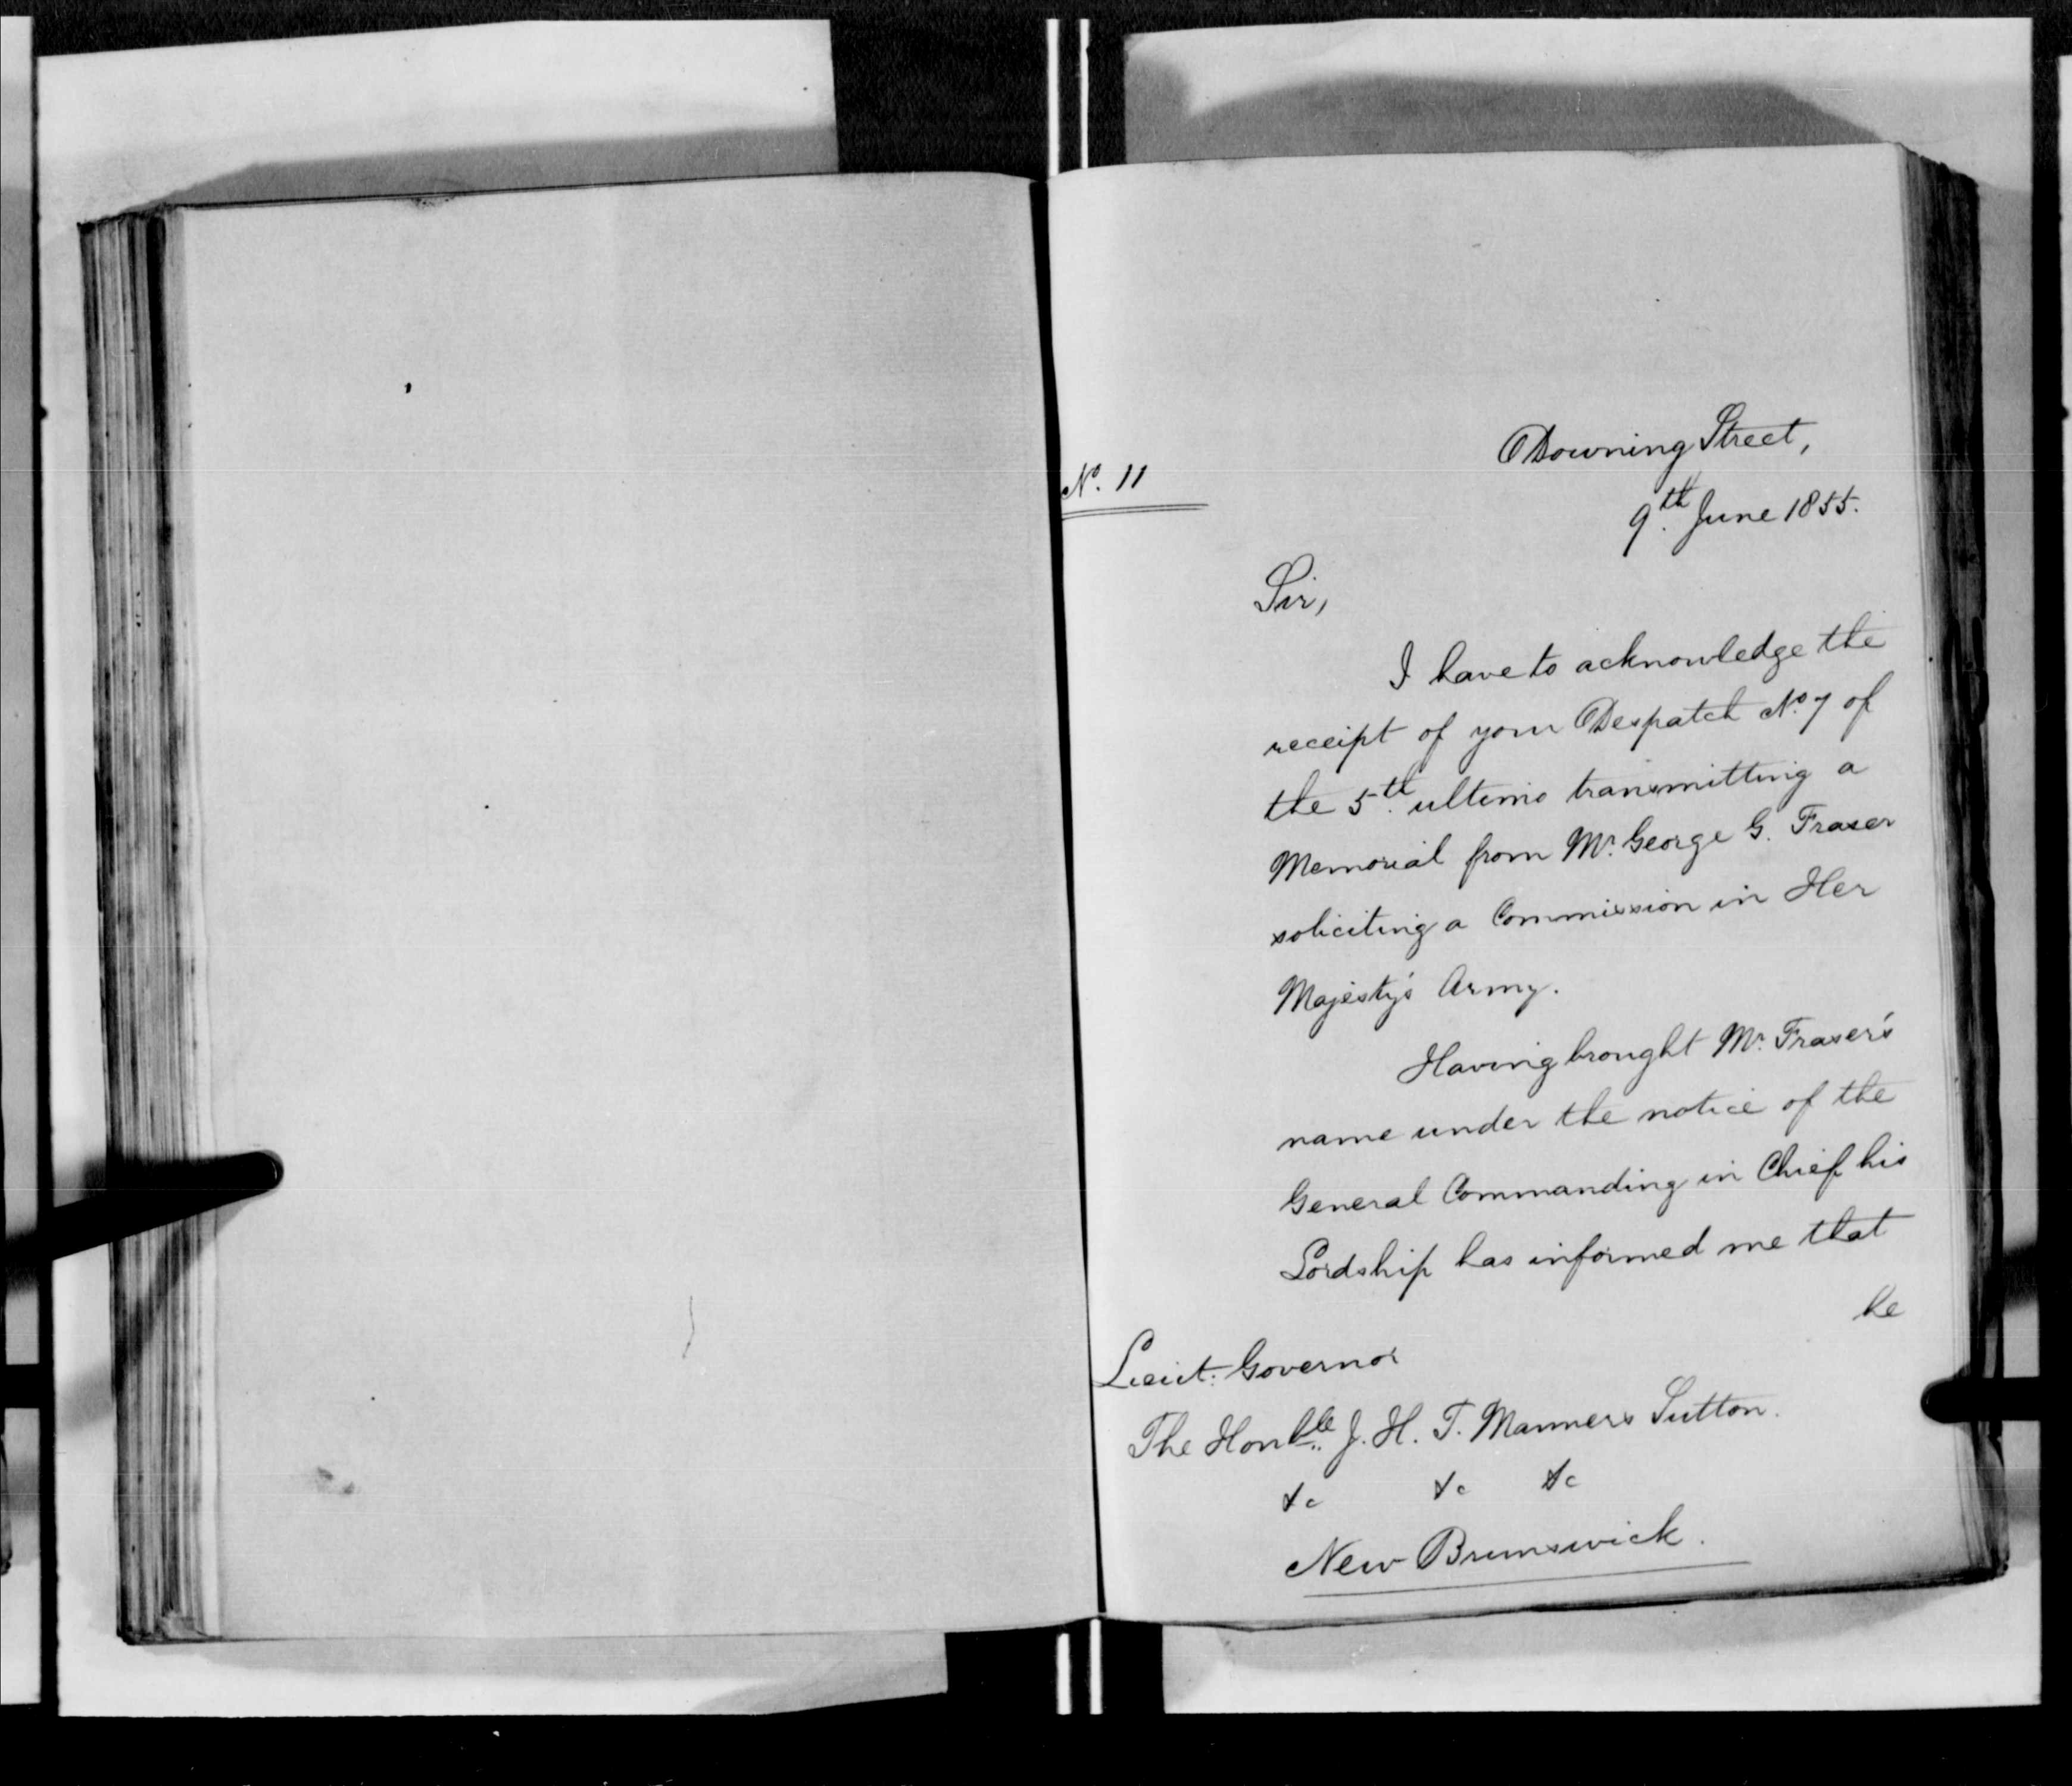 Downing Street,
No. 11
9th. June 1855.
Sir,
I have to acknowledge the
receipt of your Despatch No. 7 of
the 5th. ultimo transmitting a
Memorial from Mr. George G. Fraser
soliciting a Commission in Her
Majesty's Army.
Having brought Mr. Fraser's
name under the notice of the
General Commanding in Chief his
Lordship has informed me that
he
Lieut: Governor
The Honble. J. H. T. Manners Sutton.
&c &c &c
New Brunswick.